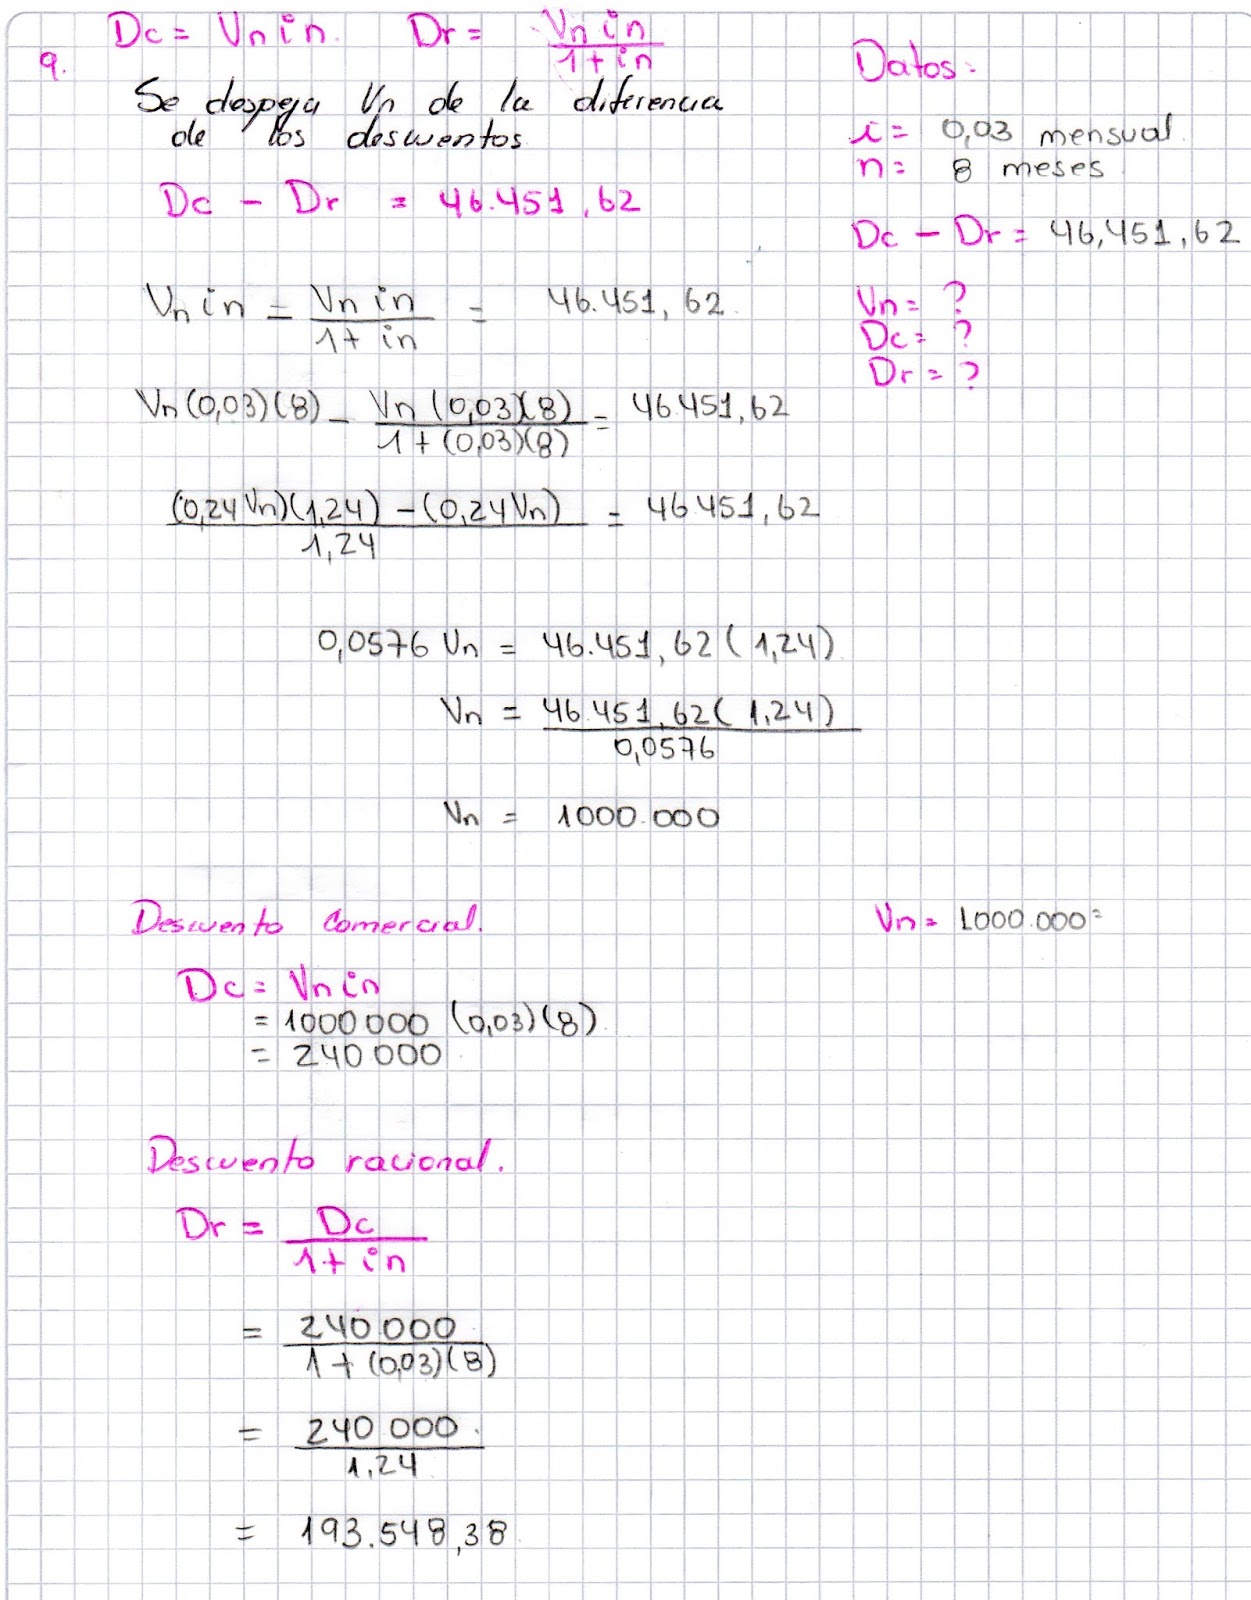 Dc = Vn in. Dr = Vn in / 1 + in
9.
Datos:
Se despeja Vn de la diferencia
de los descuentos
i = 0,03 mensual.
n = 8 meses
Dc - Dr = 46.451,62
Dc - Dr = 46,451,62
Vn in = Vn in / 1 + in = 46.451,62
Vn = ?
Dc = ?
Dr = ?
Vn (0,03)(8) - Vn (0,03)(8) / 1 + (0,03)(8) = 46451,62
(0,24 Vn)(1,24) - (0,24 Vn) / 1,24 = 46451,62
0,0576 Vn = 46.451,62 (1,24)
Vn = 46.451,62 (1,24) / 0,0576
Vn = 1000.000
Descuento Comercial.
Vn = 1000.000=
Dc = Vn in
= 1000000 (0,03)(8)
= 240000
Descuento racional.
Dr = Dc / 1 + in
= 240.000 / 1 + (0,03)(8)
= 240000. / 1,24
= 193.548,38